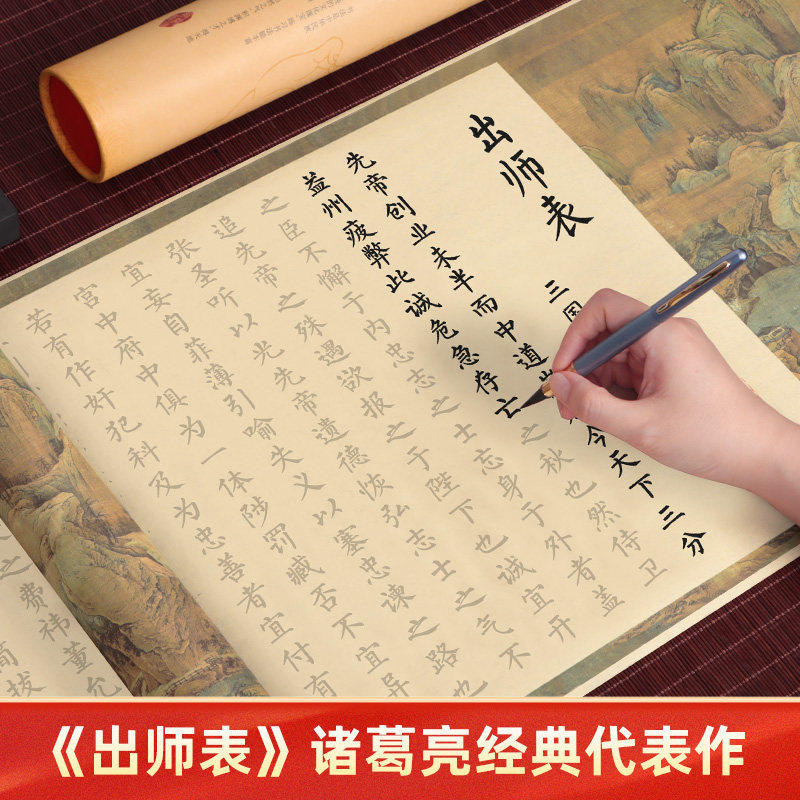 出师表
三国
先帝创业未半而中道 今天下三分
益州疲弊此诚危急存亡之秋也然侍卫
之臣不懈于内忠志之士忘身于外者盖
追先帝之殊遇欲报之于陛下也诚宜开
张圣听以光先帝遗德恢弘志士之气不
宜妄自菲薄引喻失义以塞忠谏之路也
宫中府中俱为一体陟罚臧否不宜异
若有作奸犯科及为忠善者宜付有
之费祎董允
简拔
《出师表》诸葛亮经典代表作